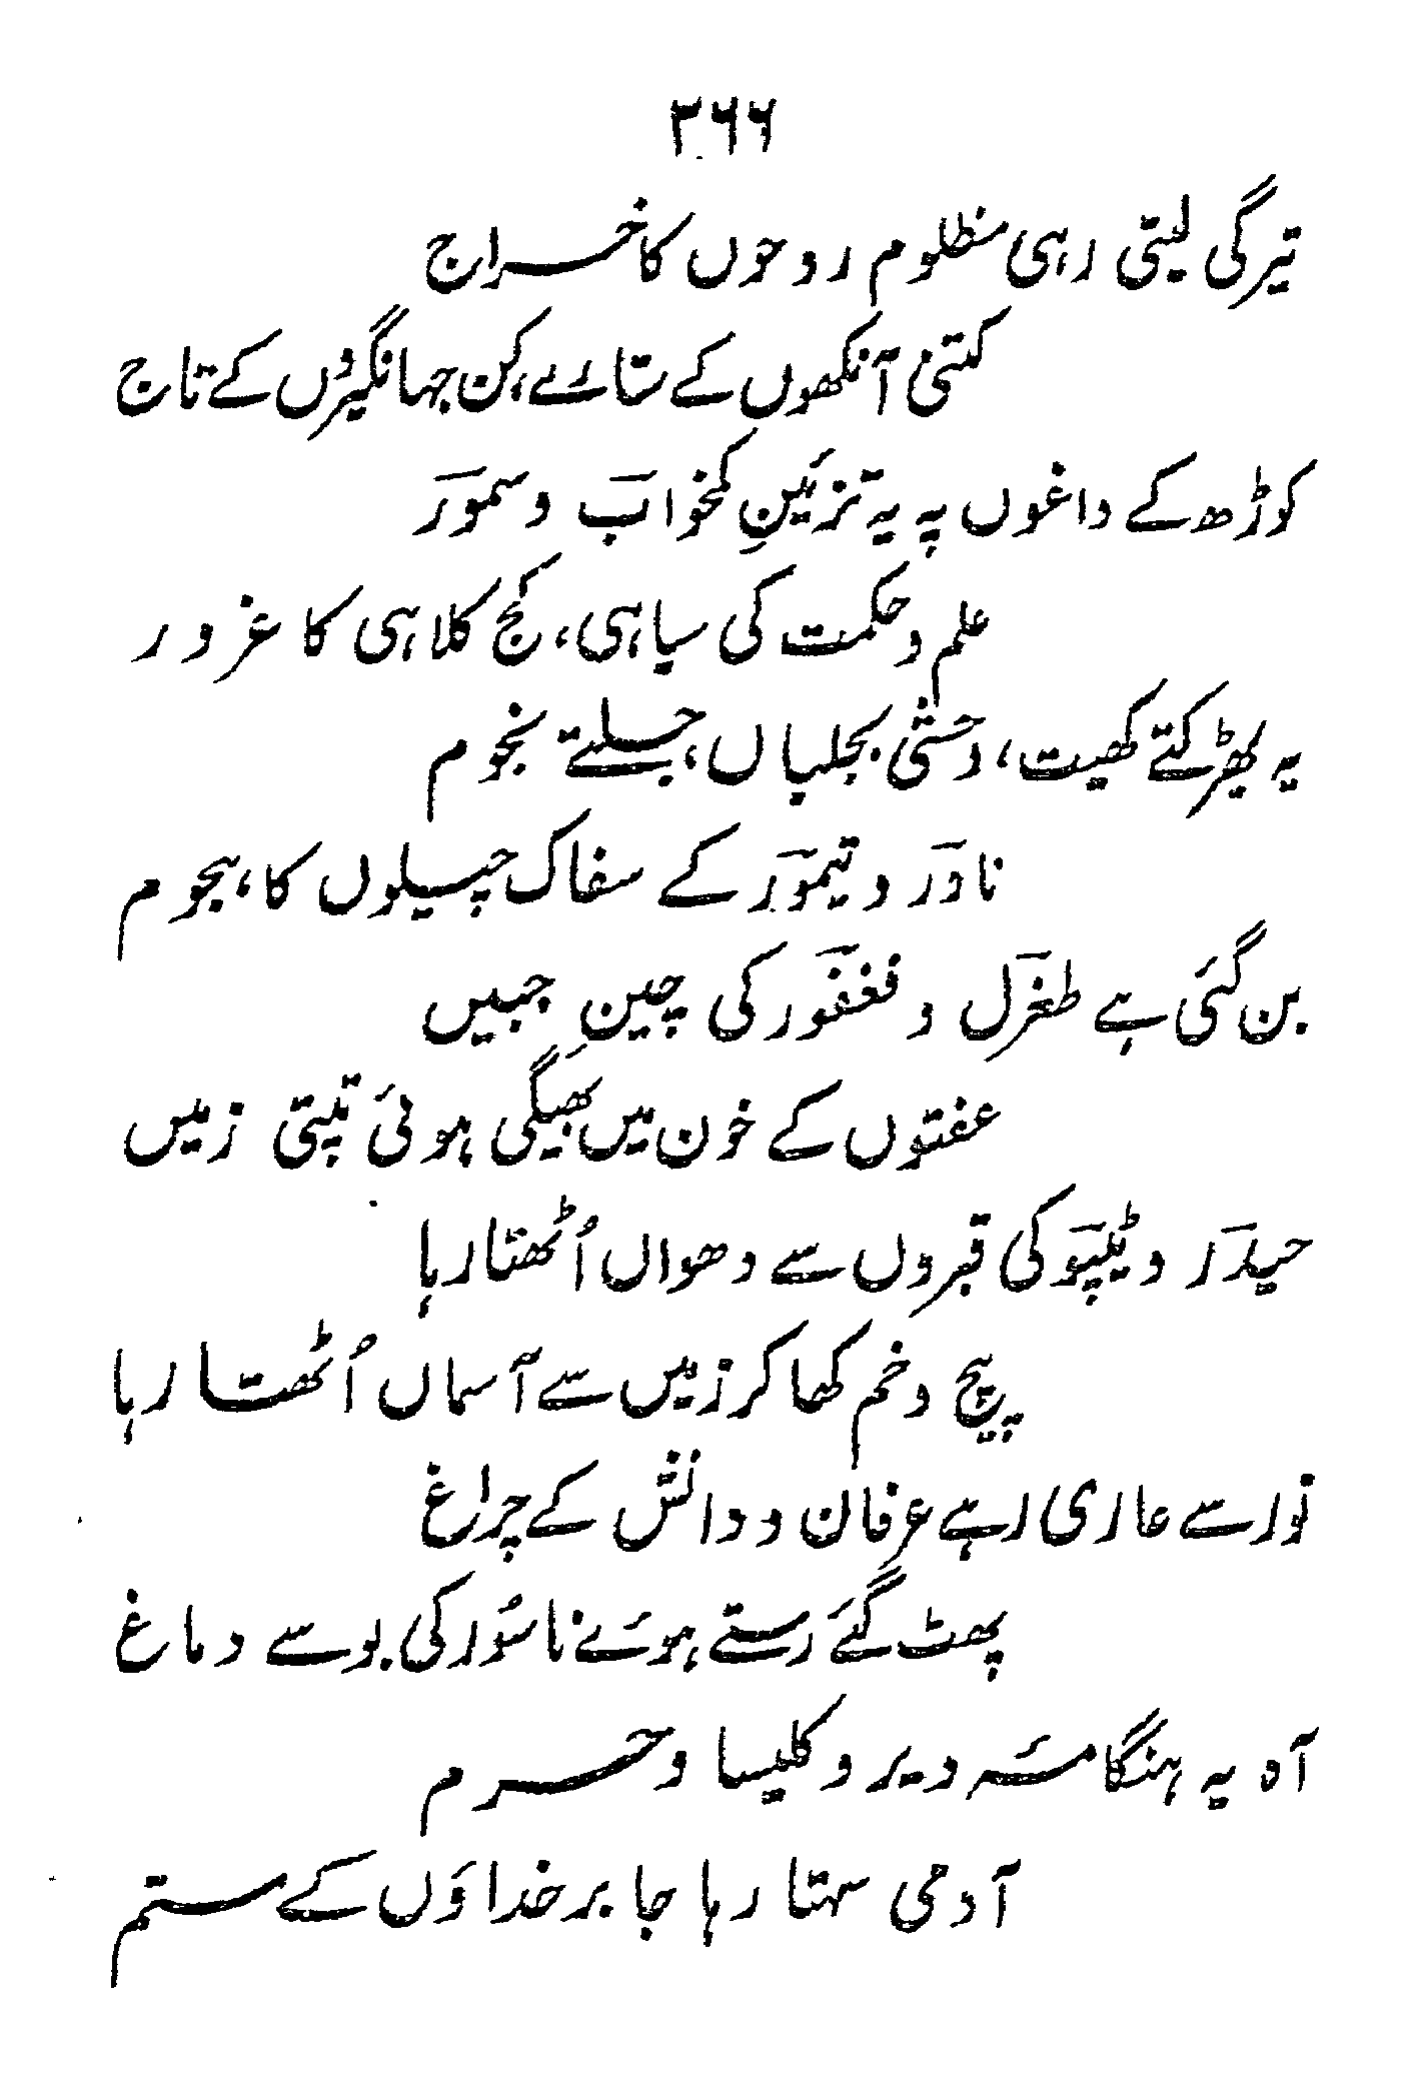 ۳۶۶
تیرگی لیتی رہی مظلوم روحوں کا خراج
کتنی آنکھوں کے ستارے، کن جہانگیروں کے تاج
کوڑھ کے داغوں پہ یہ تزئینِ کمخواب و سمور
علم و حکمت کی سیاہی، کج کلاہی کا غرور
یہ بھڑکتے کھیت، وحشی بجلیاں، جلتے نجوم
نادر و تیمور کے سفاک چیلوں کا ہجوم
بن گئی ہے طغرل و فغفور کی چینِ جبیں
عفتوں کے خون میں بھیگی ہوئی تپتی زمیں
حیدر و ٹیپو کی قبروں سے دھواں اُٹھتا رہا
پیچ و خم کھا کر زمیں سے آسماں اُٹھتا رہا
نور سے عاری رہے عرفان و دانش کے چراغ
پھٹ گئے رستے ہوئے ناسُور کی بو سے دماغ
آہ یہ ہنگامۂ دیر و کلیسا و حرم
آدمی سہتا رہا جابر خداؤں کے ستم